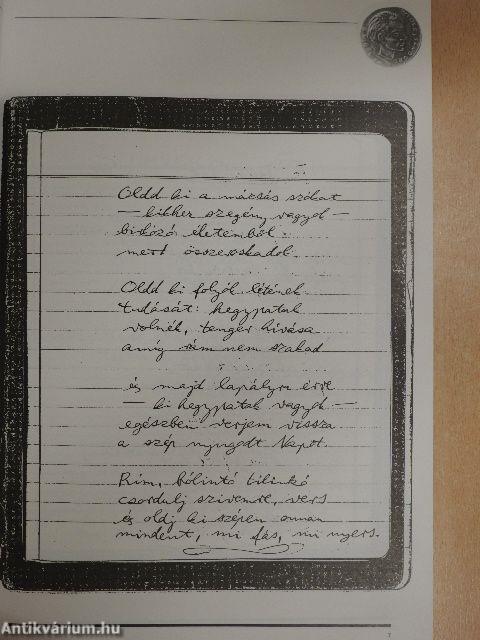 Oldd ki a mázsás szókat
— kihez szegény vagyok —
birkózó életemből
mert összeroskadok.
Oldd ki folyók létének
tudását: hegypatak
volnék, tenger hívása
amíg rám nem szakad
és majd lapályra érve
— ki hegypatak vagyok —
egészben verjem vissza
a szép nyugodt Napot.
Rím, bólintó bilinkó
csordulj szívemre, vers
és oldj ki szépen onnan
mindent, mi fás, mi nyers.
7
Antikvárium.hu